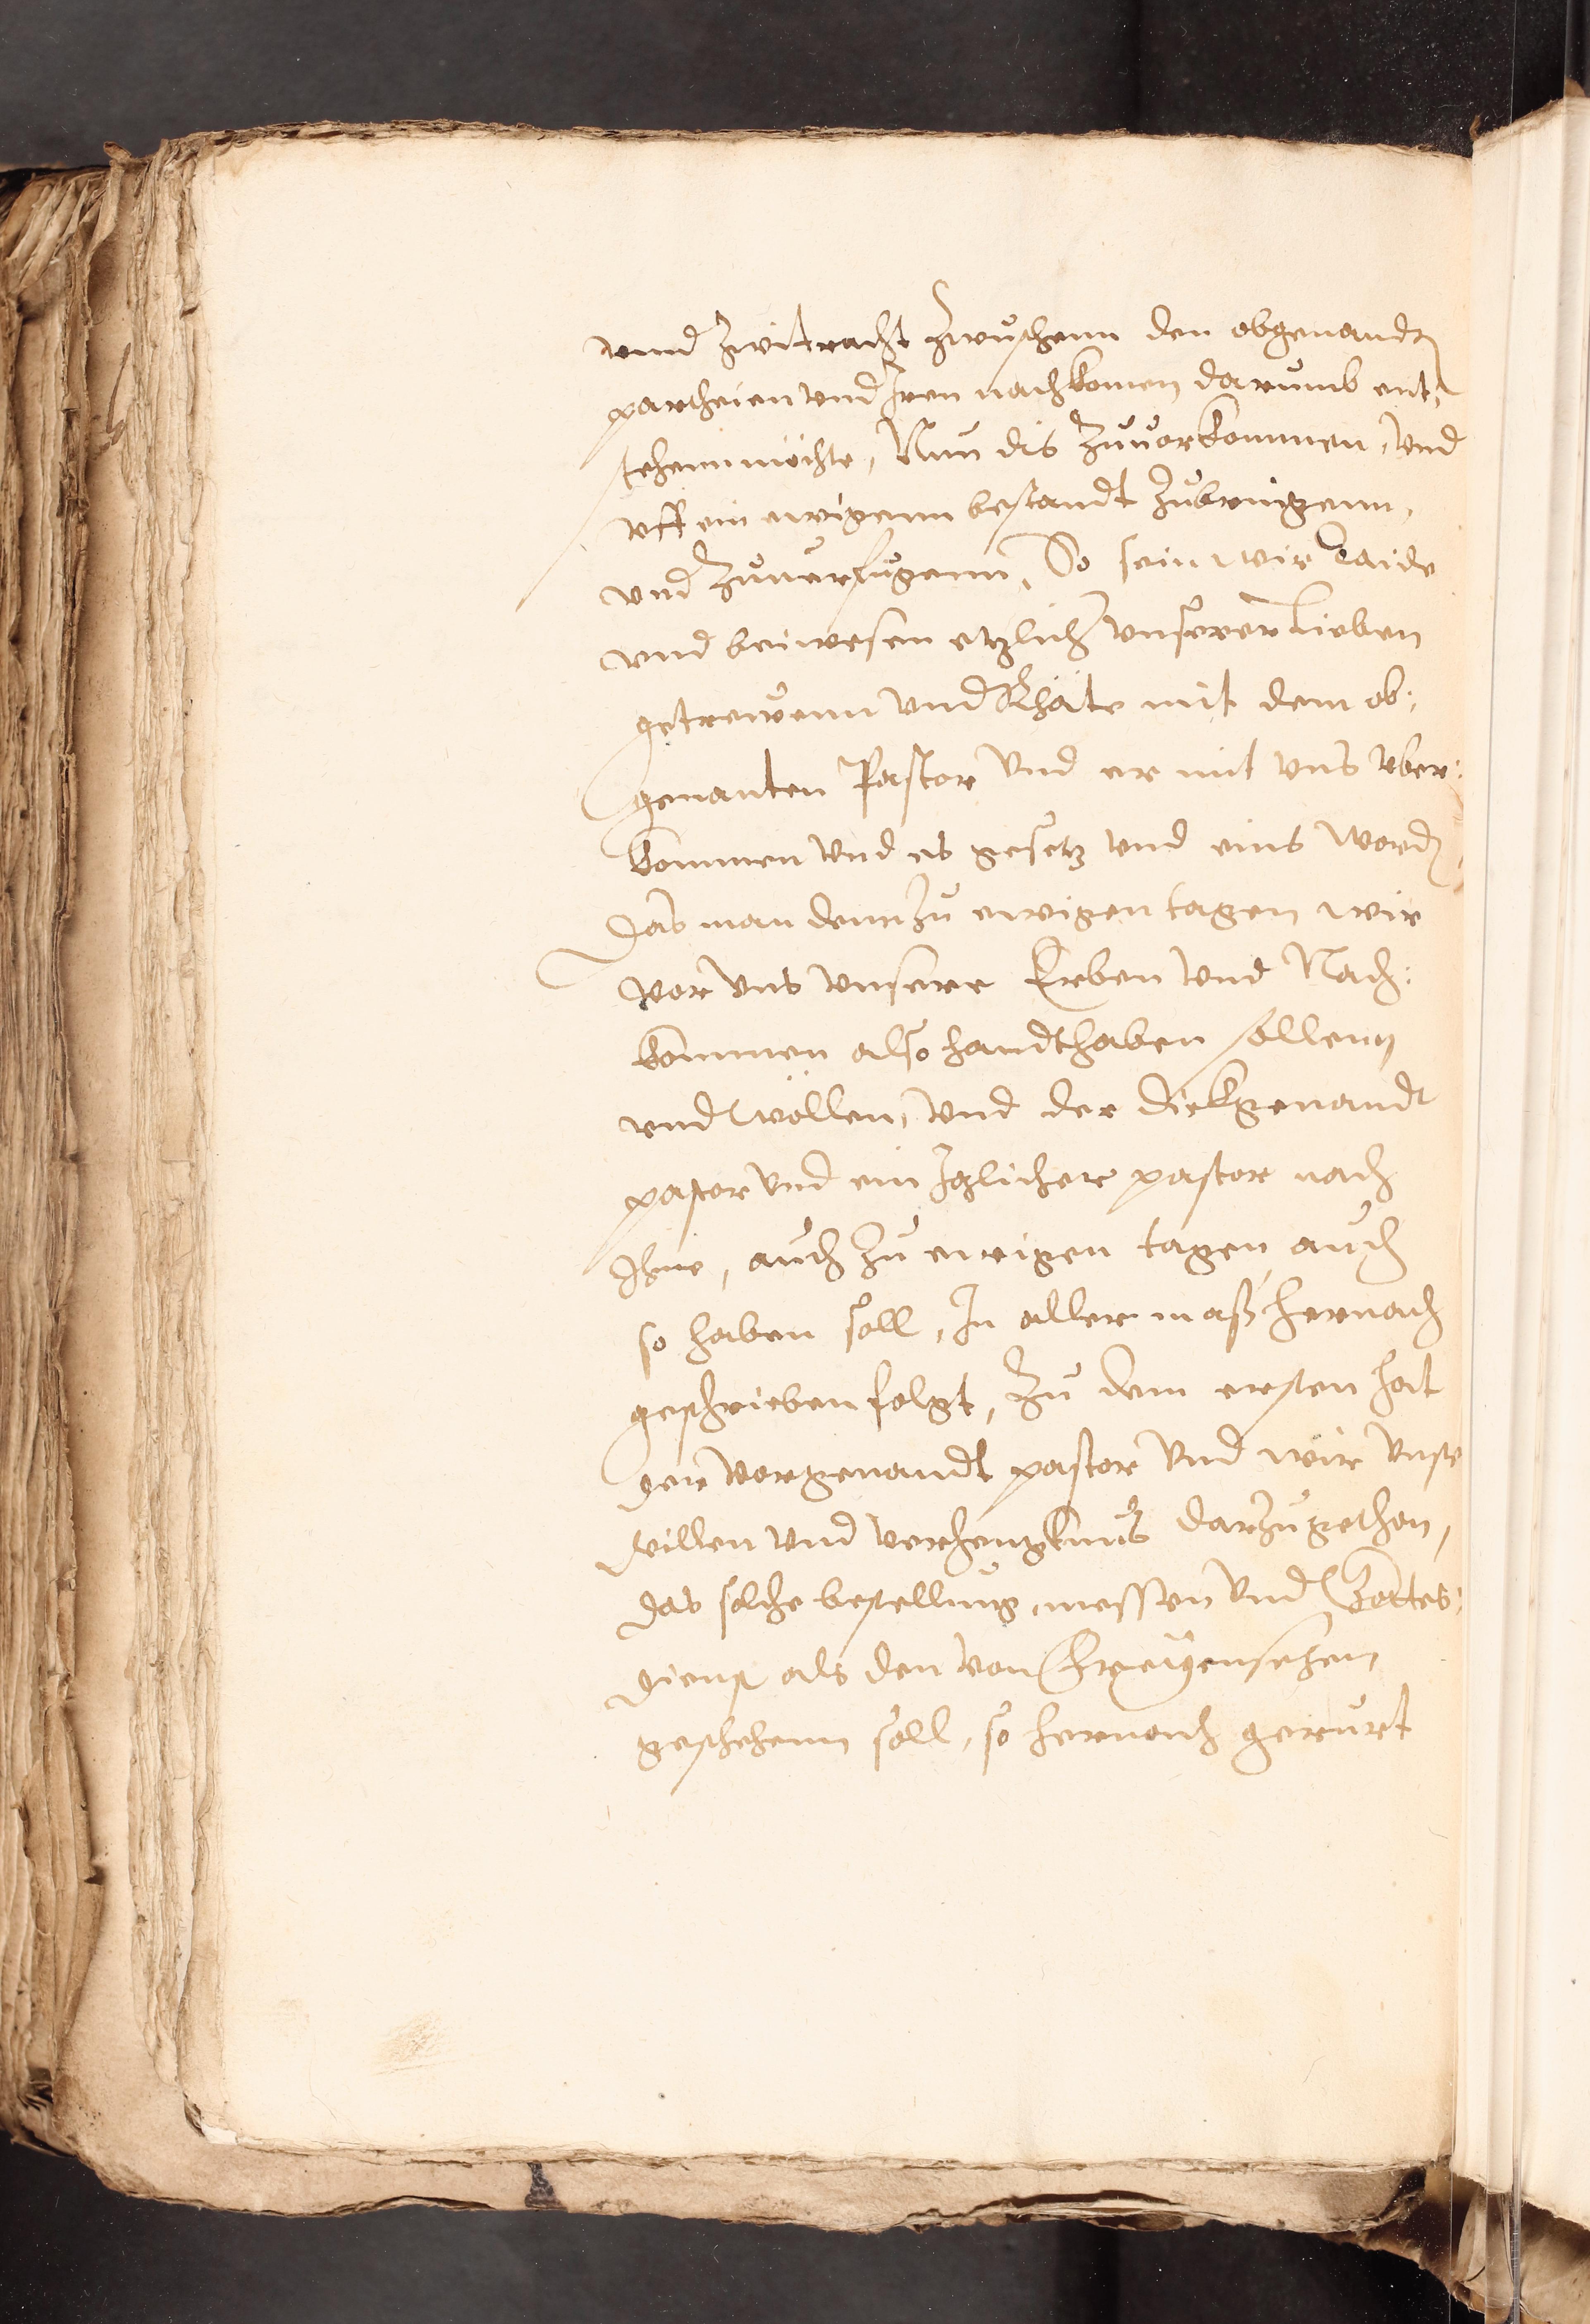 vnnd zwitracht zwuschenn den obgenandt
partheien vnd Iren nachkomen darumb ent¬
stehenn möchte, Nun dis zuuorkommen, vnd
vff ein ewigenn bestandt zubringenn,
vnd zuuerfugenn, So sein wir beide
vnd beiwesen etzlicher vnserer lieben
getrewenn vnd Rhäte mit dem ob:
genanten Pastor vnd er mit vns vber:
kommen vnd es gesetz vnd eins word
das man dem zu ewigen tagen wir
vor vns vnsere Erben vnd Nach:
kommen also handthaben sollenn
vnd wöllen, vnd der dickgenandt
pastor vnd ein Izlicher pastor nach
Ihme, auch zu ewigen tagen auch
so haben soll, In aller maß hernach
geschrieben folgt, Zu dem ersten hat
der vorgenandt pastor vnd wir vnse
willen vnd verhengknus darzu gethan,
das solche bestellung, messen vnd Gottes:
dienst als den von
geschehenn soll, so hernach gerurt